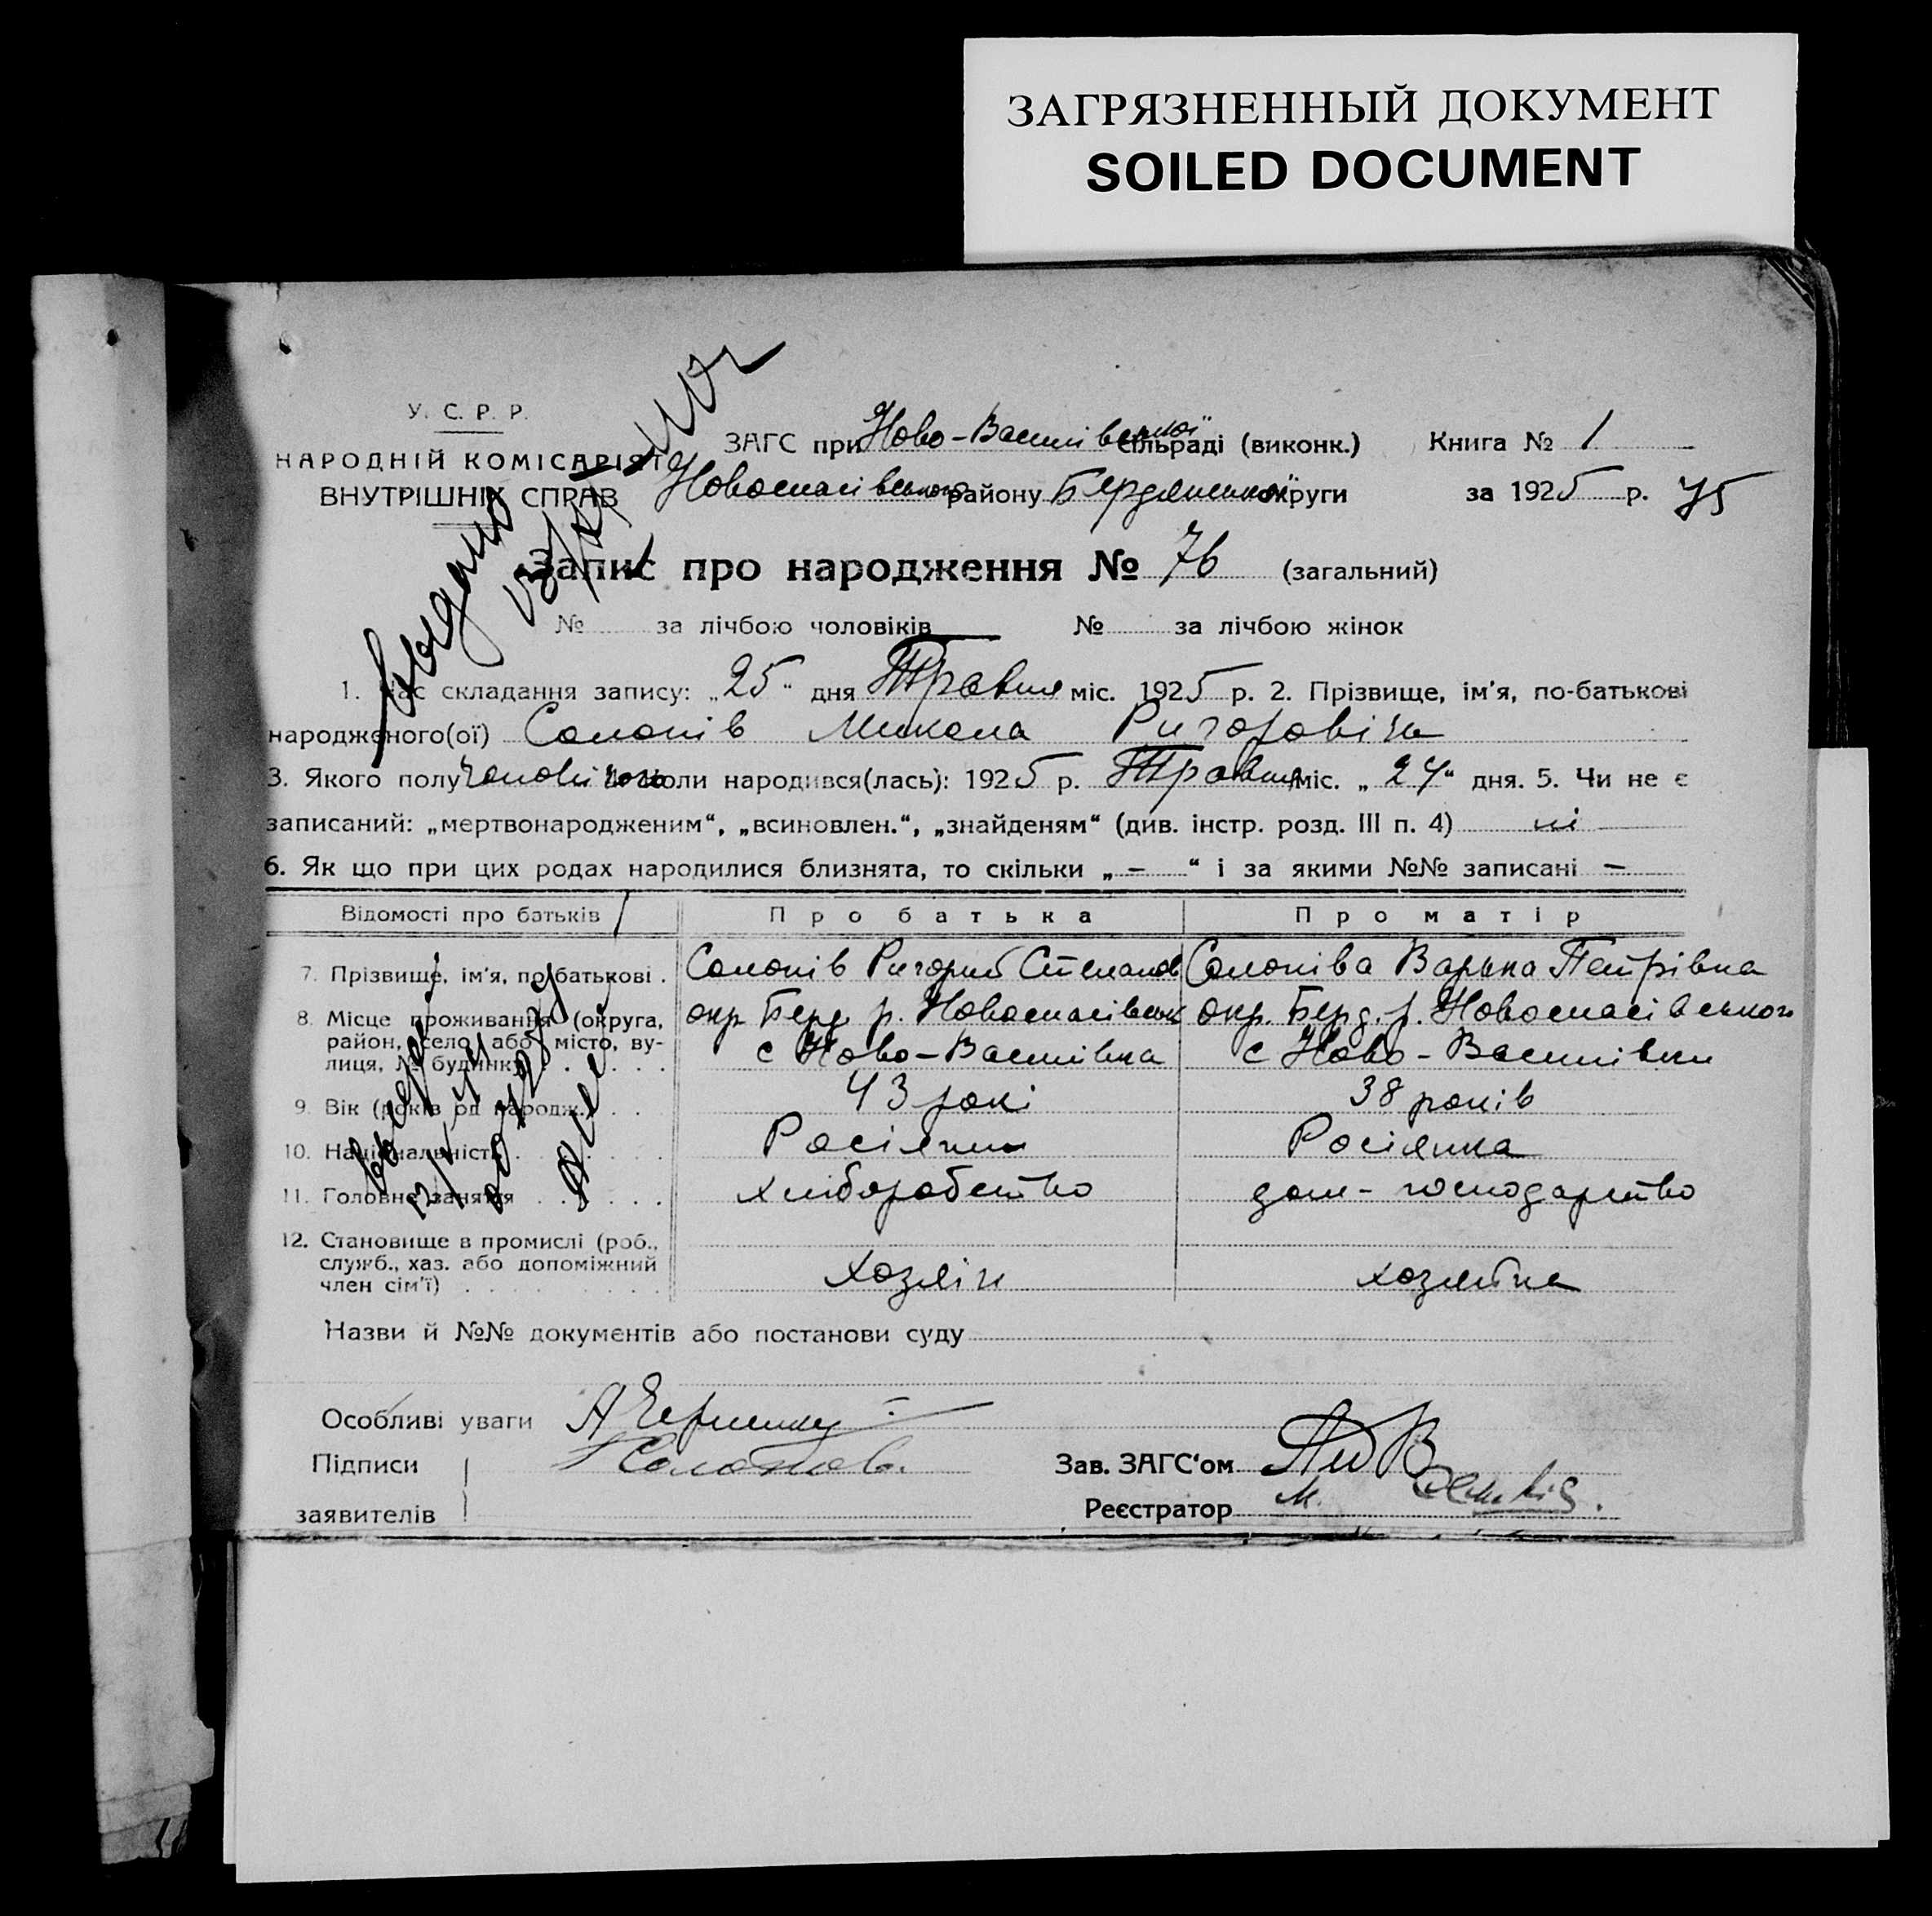 ЗАГРЯЗНЕННЫЙ ДОКУМЕНТ
SOILED DOCUMENT
У. С. Р. Р.
НАРОДНІЙ КОМІСАРІЯТ
ВНУТРІШНІХ СПРАВ
ЗАГС при Ново-Василівській сільраді (виконк.) Книга № 1
Новоспасівського району Бердянської округи за 1925 р. 75
Запис про народження № 76 (загальний)
№ за лічбою чоловіків № за лічбою жінок
1. Час складання запису: „25“ дня Травня міс. 1925 р. 2. Прізвище, ім'я, по-батькові
народженого(ої) Солопів Микола Ригоровіч
3. Якого полу чоловічого Коли народився(лась): 1925 р. Травня міс. „24“ дня. 5. Чи не є
записаний: „мертвонародженим“, „всиновлен.“, „знайденям“ (див. інстр. розд. III п. 4) ні
6. Як що при цих родах народилися близнята, то скільки „—“ і за якими №№ записані —
Відомості про батьків Про батька Про матір
7. Прізвище, ім'я, по батькові . Солопів Ригорий Степанов Солопіва Варька Петрівна
8. Місце проживання (округа, район, село або місто, вулиця, № будинку) окр Берд р. Новоспасівськ окр. Берд. р. Новоспасівського
с Ново-Василівка с Ново-Василівки
9. Вік (років од народж.) 43 рокі 38 років
10. Національність Росіянин Росіянка
11. Головне заняття хліборобство дом-господарство
12. Становище в промислі (роб., служб., хаз. або допоміжний член сім'ї) хозяін хозяйка
Назви й №№ документів або постанови суду
Особливі уваги
Підписи Солопов.
заявителів
Зав. ЗАГС'ом
Реєстратор М.